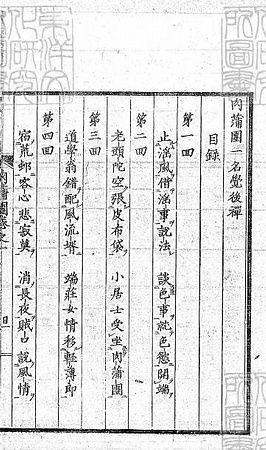 肉蒲團一名覺後禪
目録
第一囘
止滛風借滛事說法　談色事就色慾開端
第二囘
老頭陀空張皮布袋　小居士受坐肉蒲團
第三囘
道學翁錯配風流壻　端莊女情移輕薄郎
第四囘
宿荒郵客心悲寂寞　消長夜賊口說風情
肉蒲團卷之一